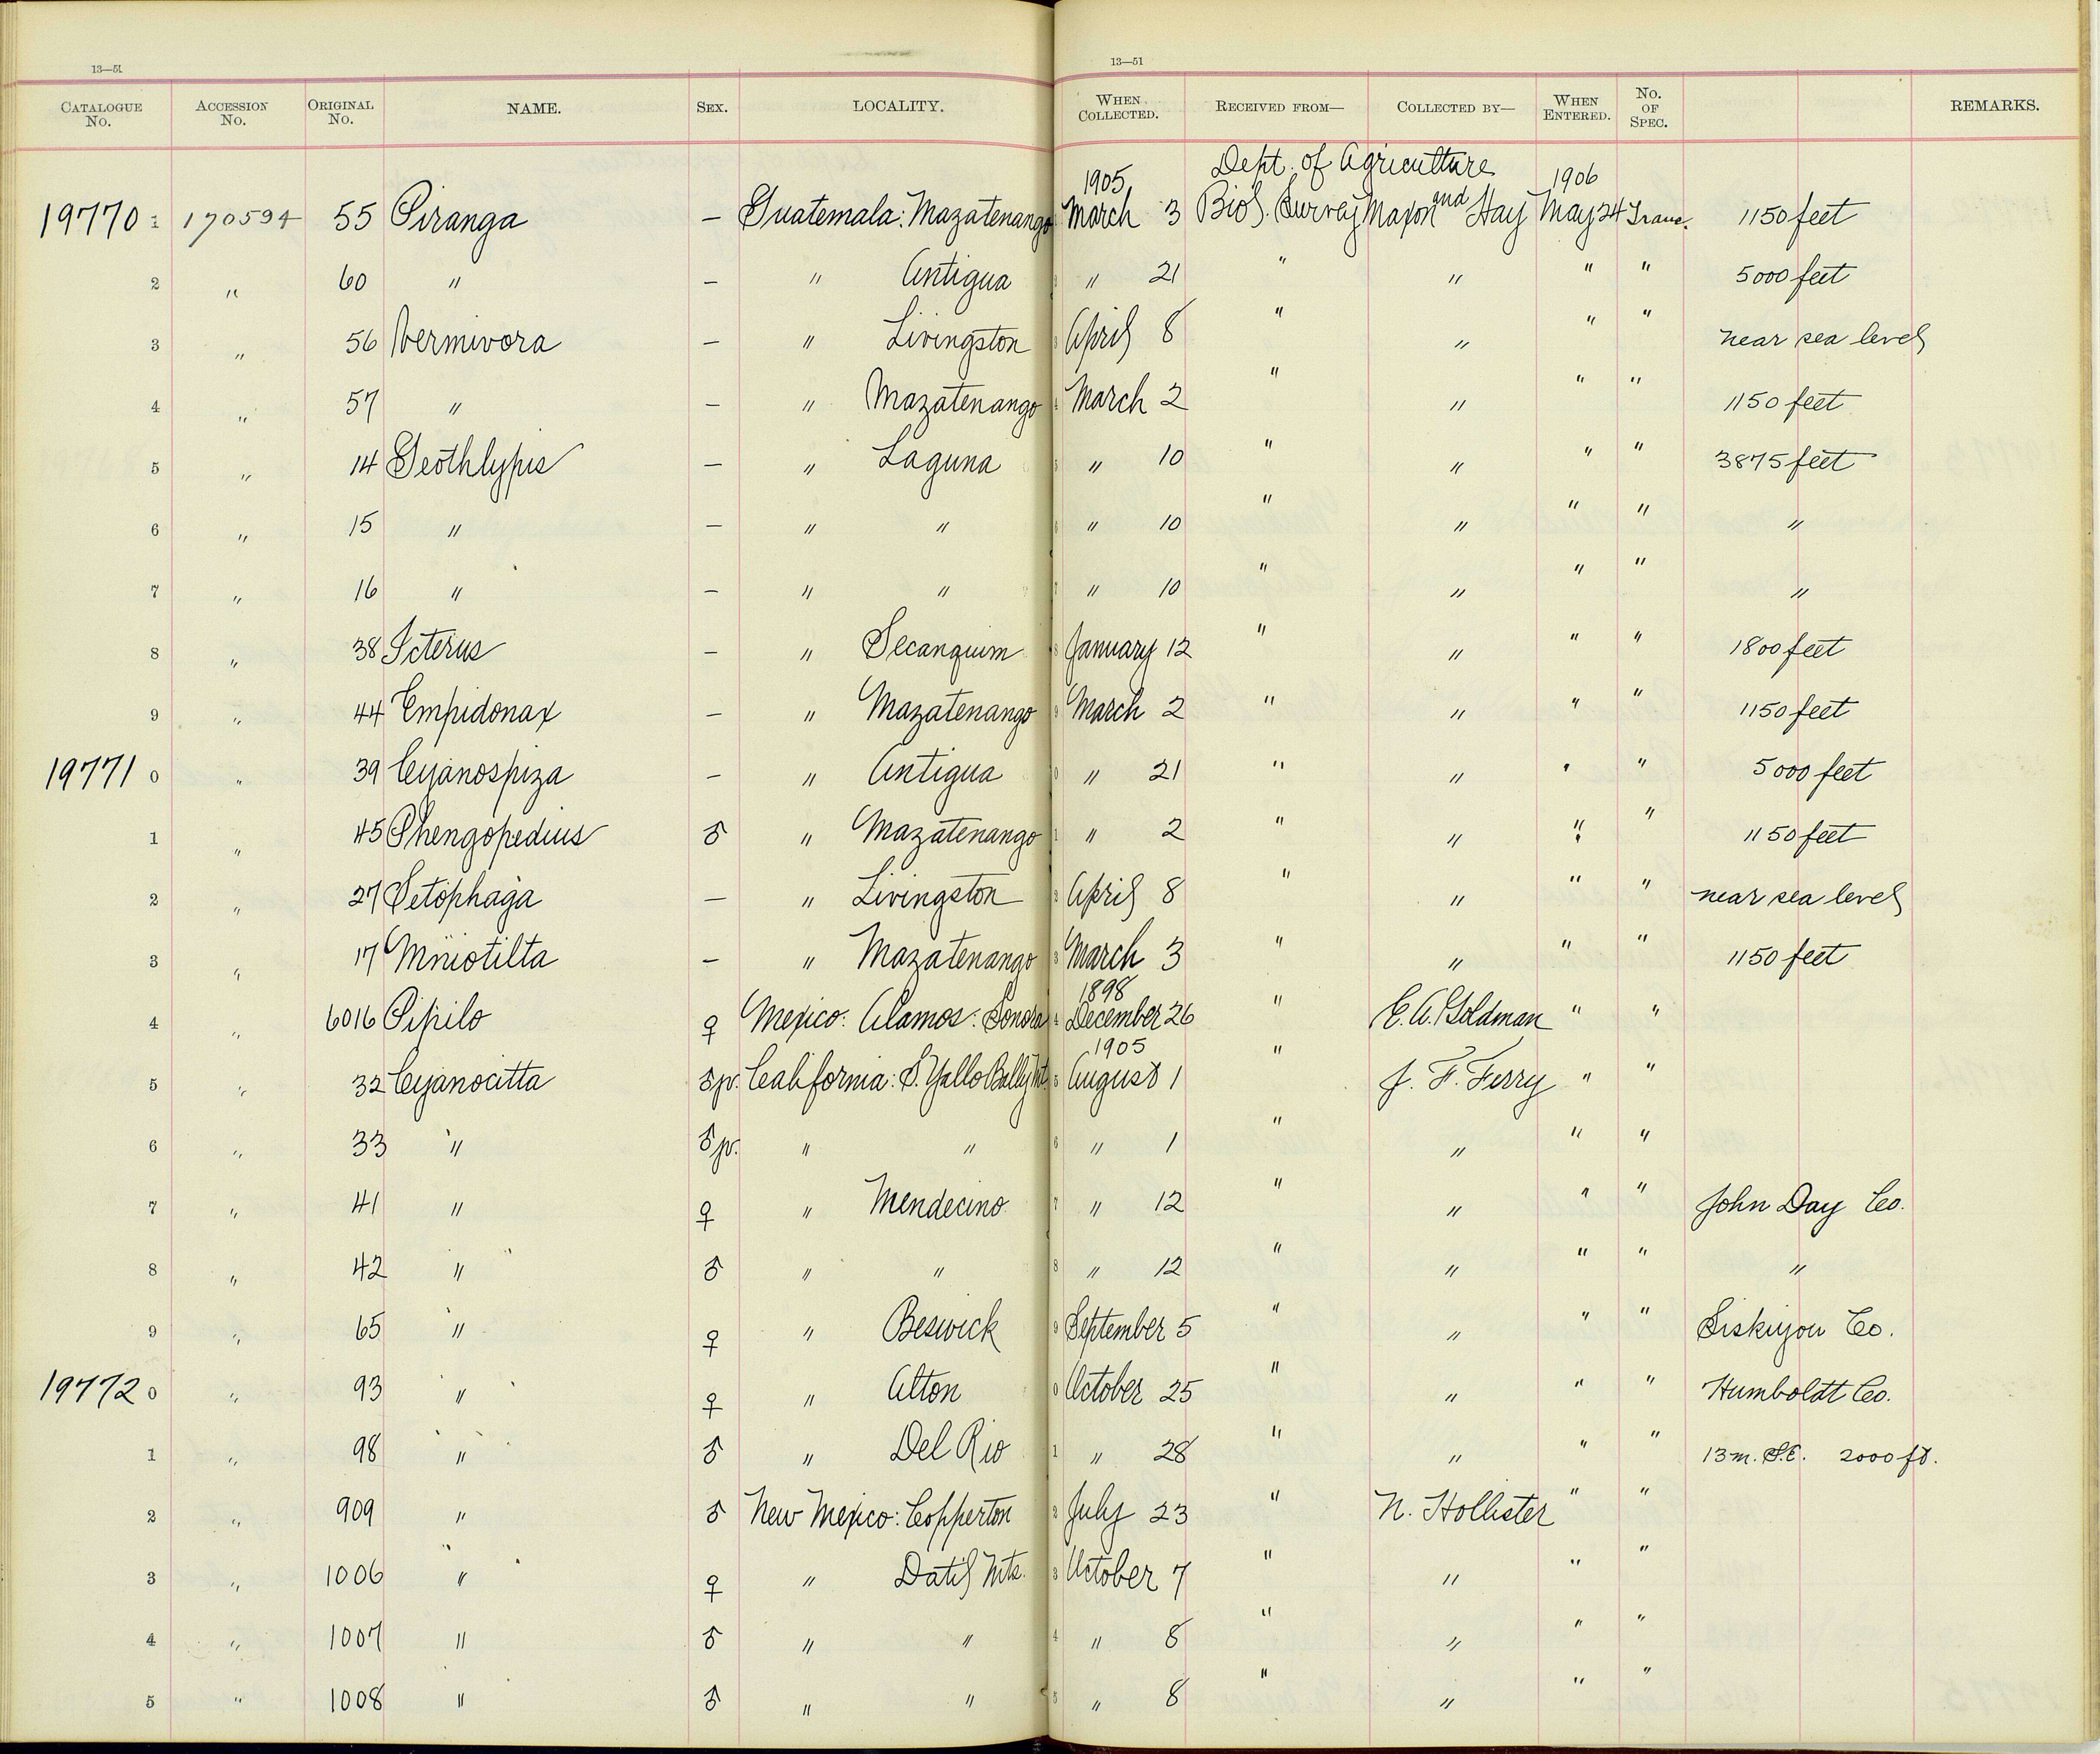 13—51 13—51
CATALOGUE No. ACCESSION No. ORIGINAL No. NAME. SEX. LOCALITY. WHEN COLLECTED. RECEIVED FROM— COLLECTED BY— WHEN ENTERED. No. OF SPEC. REMARKS.
1905 Dept. of Agriculture 1906
19770 1 170594 55 Piranga — Guatemala: Mazatenango March 3 Biol. Survey Maxon and Hay May 24 1150 feet
2 " 60 " — " Antigua " 21 " " " " 5000 feet
3 " 56 Vermivora — " Livingston April 8 " " " " near sea level
4 " 57 " — " Mazatenango March 2 " " " " 1150 feet
5 " 14 Geothlypis — " Laguna " 10 " " " " 3875 feet
6 " 15 " — " " " 10 " " " " "
7 " 16 " — " " " 10 " " " " "
8 " 38 Icterus — " Secanquim January 12 " " " " 1800 feet
9 " 44 Empidonax — " Mazatenango March 2 " " " " 1150 feet
19771 0 " 39 Cyanospiza — " Antigua " 21 " " " " 5000 feet
1 " 45 Phengopedius ♂ " Mazatenango " 2 " " " " 1150 feet
2 " 27 Setophaga — " Livingston April 8 " " " " near sea level
3 " 17 Mniotilta — " Mazatenango March 3 " " " " 1150 feet
1898
4 " 6016 Pipilo ♀ Mexico: Alamos: Sonora December 26 " E. A. Goldman " "
1905
5 " 32 Cyanocitta ♂ jv. California: S. Yallo Bally Mt. August 1 " J. F. Ferry " "
6 " 33 " ♂ jv. " " " 1 " " " "
7 " 41 " ♀ " Mendecino " 12 " " " " John Day Co.
8 " 42 " ♂ " " " 12 " " " " "
9 " 65 " ♀ " Beswick September 5 " " " " Siskiyou Co.
19772 0 " 93 " ♀ " Alton October 25 " " " " Humboldt Co.
1 " 98 " ♂ " Del Rio " 28 " " " " 13 m. S.E. 2000 ft.
2 " 909 " ♂ New Mexico: Copperton July 23 " N. Hollister " "
3 " 1006 " ♀ " Datil Mts. October 7 " " " "
4 " 1007 " ♂ " " " 8 " " " "
5 " 1008 " ♂ " " " 8 " " " "